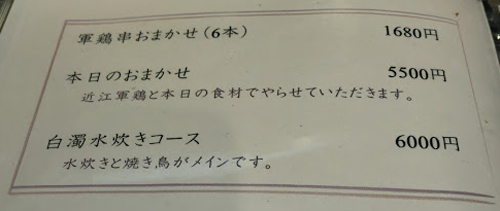 軍鶏串おまかせ（6本） 1680円
本日のおまかせ 5500円
近江軍鶏と本日の食材でやらせていただきます。
白濁水炊きコース 6000円
水炊きと焼き鳥がメインです。